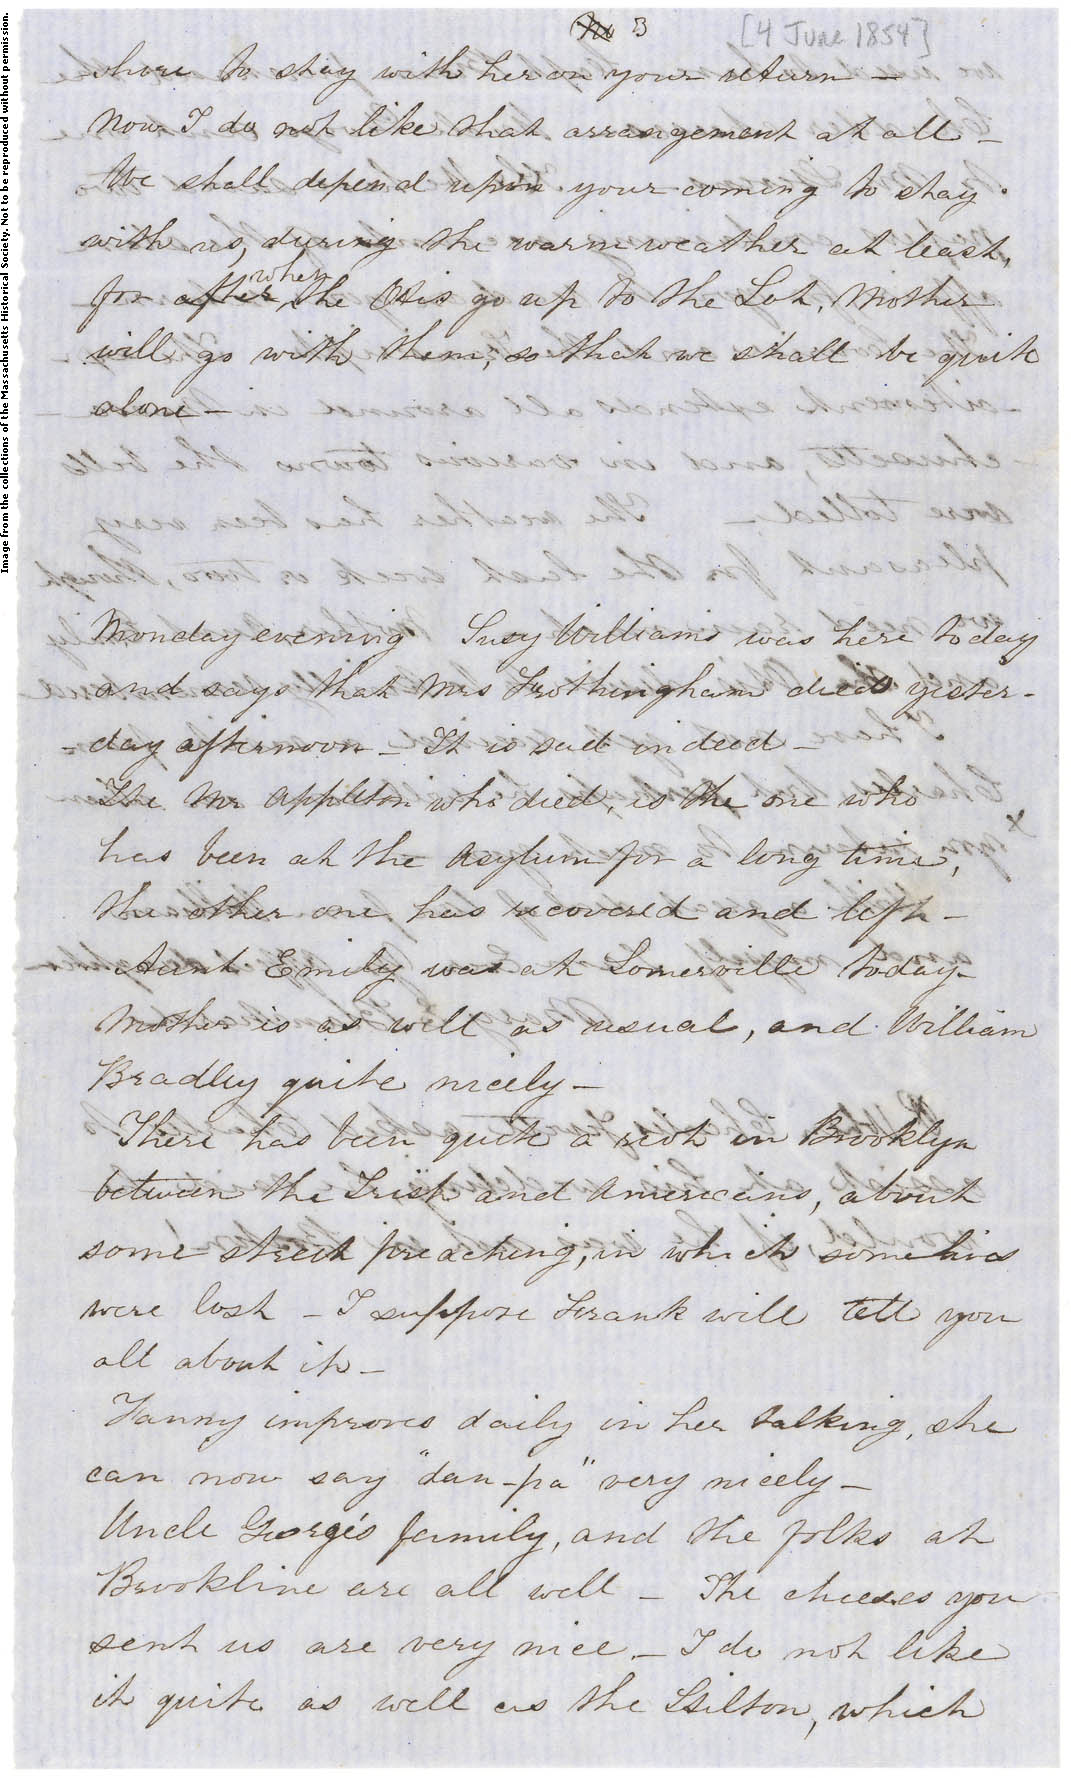 3 [4 June 1854]
where to stay with her on your return —
Now I do not like that arrangement at all —
We shall depend upon your coming to stay
with us, during the warm weather at least,
for after when the Otis go up to the Lot, Mother
will go with them, so that we shall be quite
alone —
Monday evening Susy Williams was here today
and says that Mrs Frothingham died yester-
-day afternoon — It is sad indeed —
The Mr Appleton who died, is the one who
has been at the Asylum for a long time,
the other one has recovered and left —
Aunt Emily was at Somerville today —
Mother is as well as usual, and William
Bradley quite nicely —
There has been quite a riot in Brooklyn
between the Irish and Americans, about
some street preaching, in which some lives
were lost — I suppose Frank will tell you
all about it —
Fanny improves daily in her talking, she
can now say "dan-pa" very nicely —
Uncle George's family, and the folks at
Brookline are all well — The cheeses you
sent us are very nice — I do not like
it quite as well as the Stilton, which
Image from the collections of the Massachusetts Historical Society. Not to be reproduced without permission.